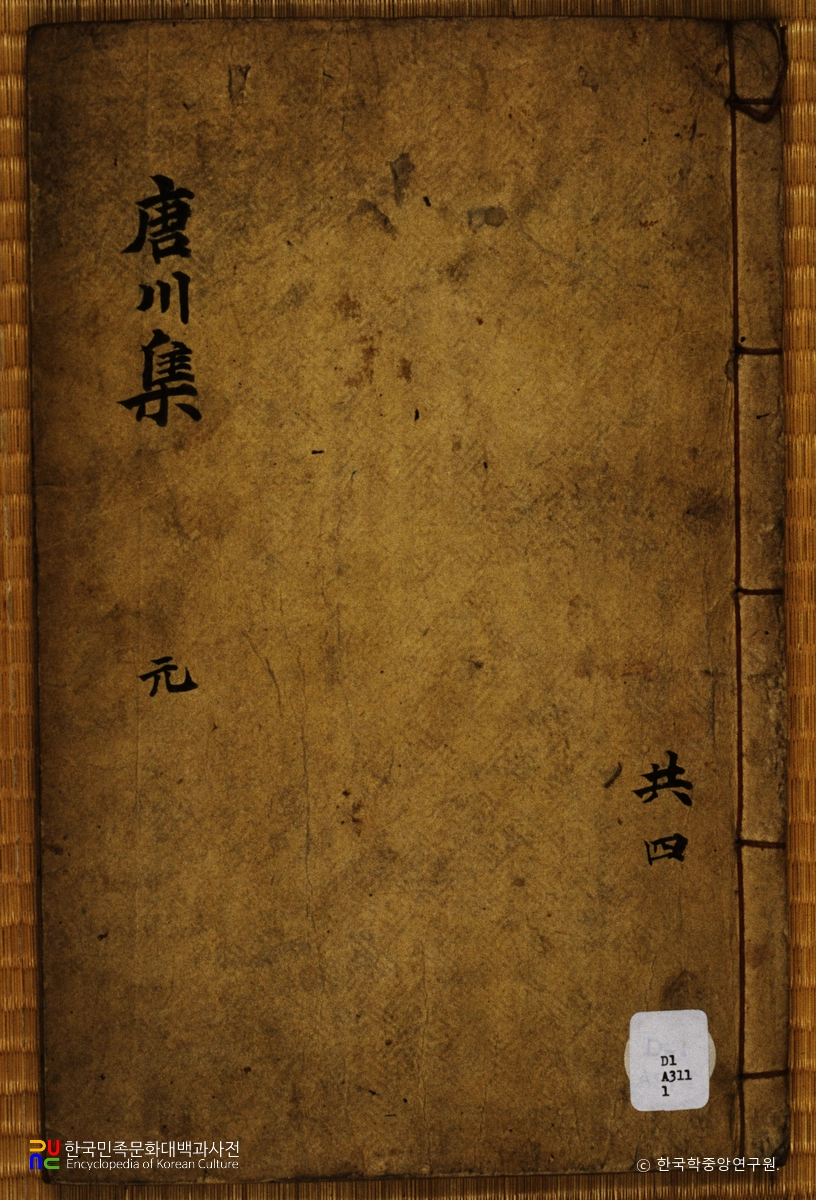 唐川集
元
共四
D1
A311
1
한국민족문화대백과사전
Encyclopedia of Korean Culture
© 한국학중앙연구원.